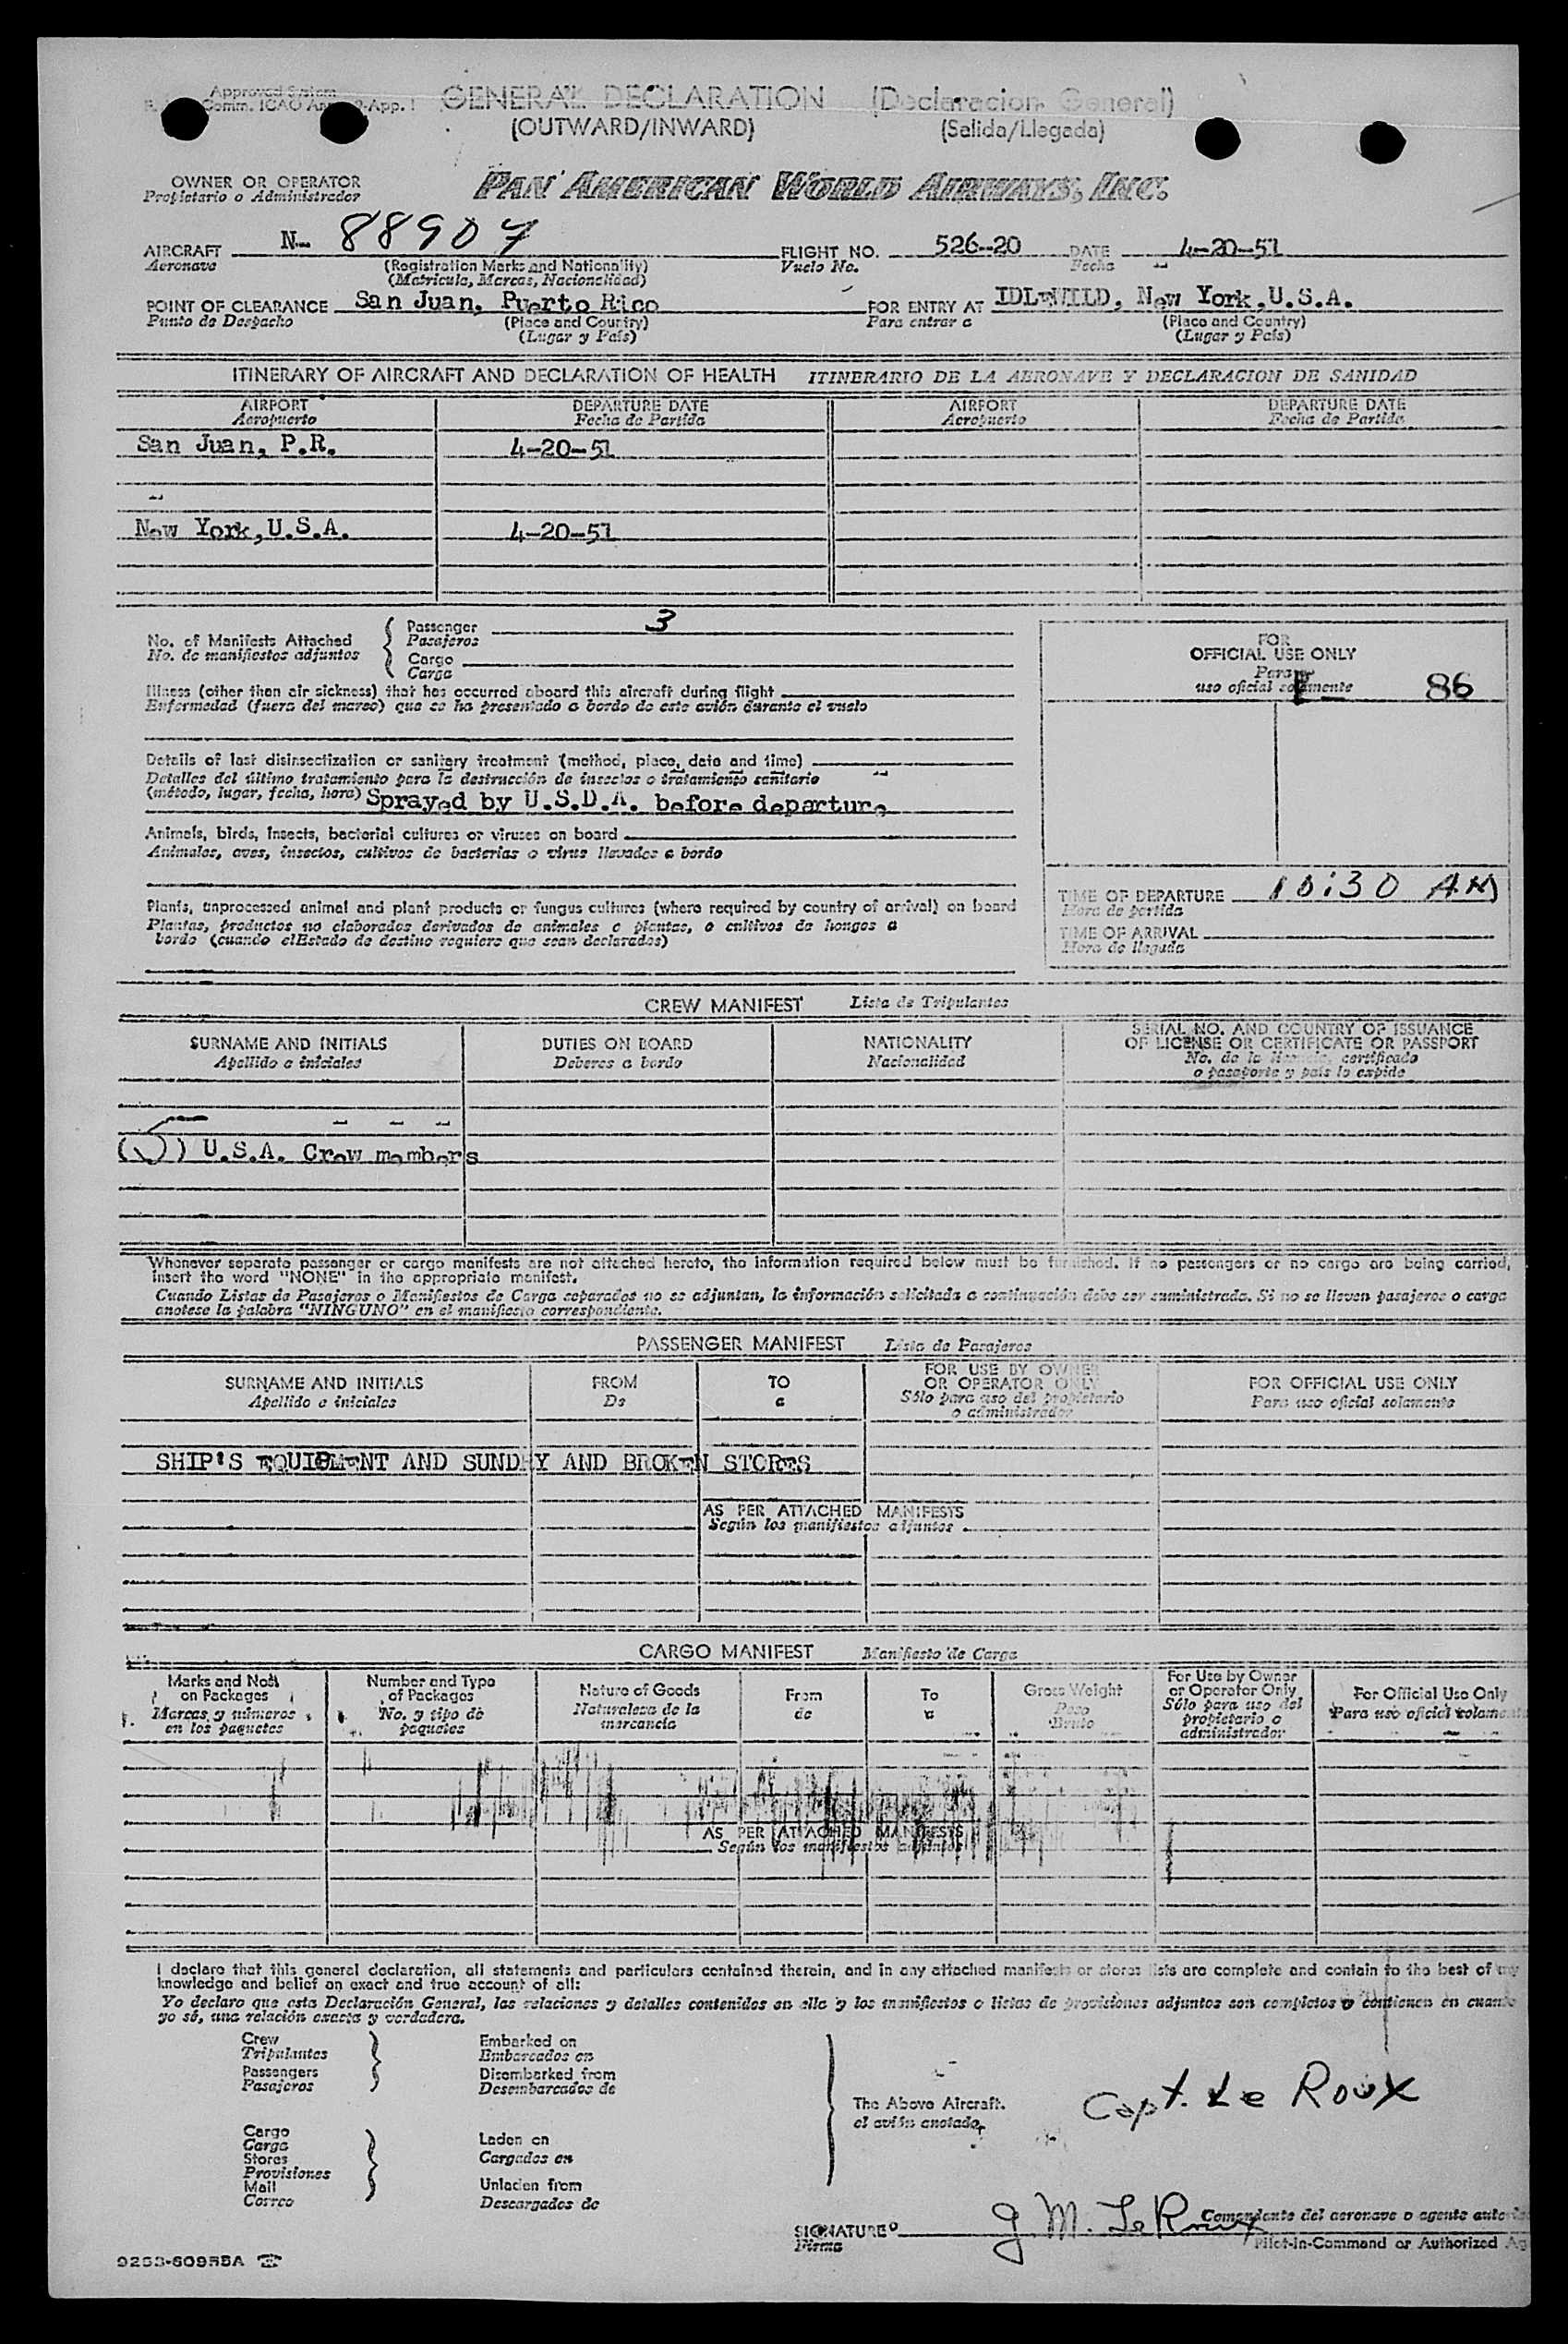 Approved System
Comm. ICAO An 9-App. 1
GENERAL DECLARATION (Declaracion General)
(OUTWARD/INWARD) (Salida/Llegada)
OWNER OR OPERATOR
Propietario o Administrador
PAN AMERICAN WORLD AIRWAYS, INC.
AIRCRAFT N- 88907 FLIGHT NO. 526-20 DATE 4-20-51
Aeronave (Registration Marks and Nationality) Vuelo No. Fecha
(Matricula, Marcas, Nacionalidad)
POINT OF CLEARANCE San Juan, Puerto Rico FOR ENTRY AT IDLEWILD, New York,U.S.A.
Punto de Despacho (Place and Country) Para entrar a (Place and Country)
(Lugar y País) (Lugar y País)
ITINERARY OF AIRCRAFT AND DECLARATION OF HEALTH ITINERARIO DE LA AERONAVE Y DECLARACION DE SANIDAD
AIRPORT DEPARTURE DATE AIRPORT DEPARTURE DATE
Aeropuerto Fecha de Partida Aeropuerto Fecha de Partida
San Juan, P.R. 4-20-51
New York,U.S.A. 4-20-51
No. of Manifests Attached
No. de manifiestos adjuntos
Passenger 3
Pasajeros
Cargo
Carga
FOR
OFFICIAL USE ONLY
Para
uso oficial solamente 86
Illness (other than air sickness) that has occurred aboard this aircraft during flight
Enfermedad (fuera del mareo) que se ha presentado a bordo de este avión durante el vuelo
Details of last disinsectization or sanitary treatment (method, place, date and time)
Detalles del último tratamiento para la destrucción de insectos o tratamiento sanitario
(método, lugar, fecha, hora) Sprayed by U.S.D.A. before departure
Animals, birds, insects, bacterial cultures or viruses on board
Animales, aves, insectos, cultivos de bacterias o virus llevados a bordo
Plants, unprocessed animal and plant products or fungus cultures (where required by country of arrival) on board
Plantas, productos no elaborados derivados de animales o plantas, o cultivos de hongos a
bordo (cuando elEstado de destino requiere que sean declarados)
TIME OF DEPARTURE 10:30 AM
Hora de partida
TIME OF ARRIVAL
Hora de llegada
CREW MANIFEST Lista de Tripulantes
SURNAME AND INITIALS DUTIES ON BOARD NATIONALITY SERIAL NO. AND COUNTRY OF ISSUANCE
OF LICENSE OR CERTIFICATE OR PASSPORT
Apellido e iniciales Deberes a bordo Nacionalidad No. de la licencia, certificado
o pasaporte y país lo expide
(5) U.S.A. Crew members
Whenever separate passenger or cargo manifests are not attached hereto, the information required below must be furnished. If no passengers or no cargo are being carried,
insert the word "NONE" in the appropriate manifest.
Cuando Listas de Pasajeros o Manifiestos de Carga separados no se adjuntan, la información solicitada a continuación debe ser suministrada. Si no se lleven pasajeros o carga
anotese la palabra "NINGUNO" en el manifiesto correspondiente.
PASSENGER MANIFEST Lista de Pasajeros
SURNAME AND INITIALS FROM TO FOR USE BY OWNER
OR OPERATOR ONLY FOR OFFICIAL USE ONLY
Apellido e iniciales De a Sólo para uso del propietario
o administrador Para uso oficial solamente
SHIP'S EQUIPMENT AND SUNDRY AND BROKEN STORES
AS PER ATTACHED MANIFESTS
Según los manifiestos adjuntos
CARGO MANIFEST Manifiesto de Carga
Marks and Nos.
on Packages
Marcas y números
en los paquetes
Number and Type
of Packages
No. y tipo de
paquetes
Nature of Goods
Naturaleza de la
mercancía
From
de
To
a
Gross Weight
Peso
Bruto
For Use by Owner
or Operator Only
Sólo para uso del
propietario o
administrador
For Official Use Only
Para uso oficial solamente
AS PER ATTACHED MANIFESTS
Según los manifiestos adjuntos
I declare that this general declaration, all statements and particulars contained therein, and in any attached manifests or stores lists are complete and contain to the best of my
knowledge and belief an exact and true account of all:
Yo declaro que esta Declaración General, las relaciones y detalles contenidos en ella y los manifiestos o listas de provisiones adjuntos son completos y contienen en cuanto
yo sé, una relación exacta y verdadera.
Crew
Tripulantes
Passengers
Pasajeros
Embarked on
Embarcados en
Disembarked from
Desembarcados de
Cargo
Carga
Stores
Provisiones
Mail
Correo
Laden on
Cargados en
Unladen from
Descargados de
The Above Aircraft.
el avión anotado.
Capt. Le Roux
SIGNATURE G. M. Le Roux Comandante del aeronave o agente
Firma Pilot-in-Command or Authorized
9263-6095BA